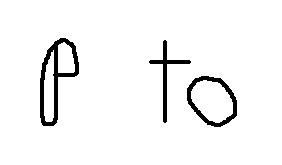 P to